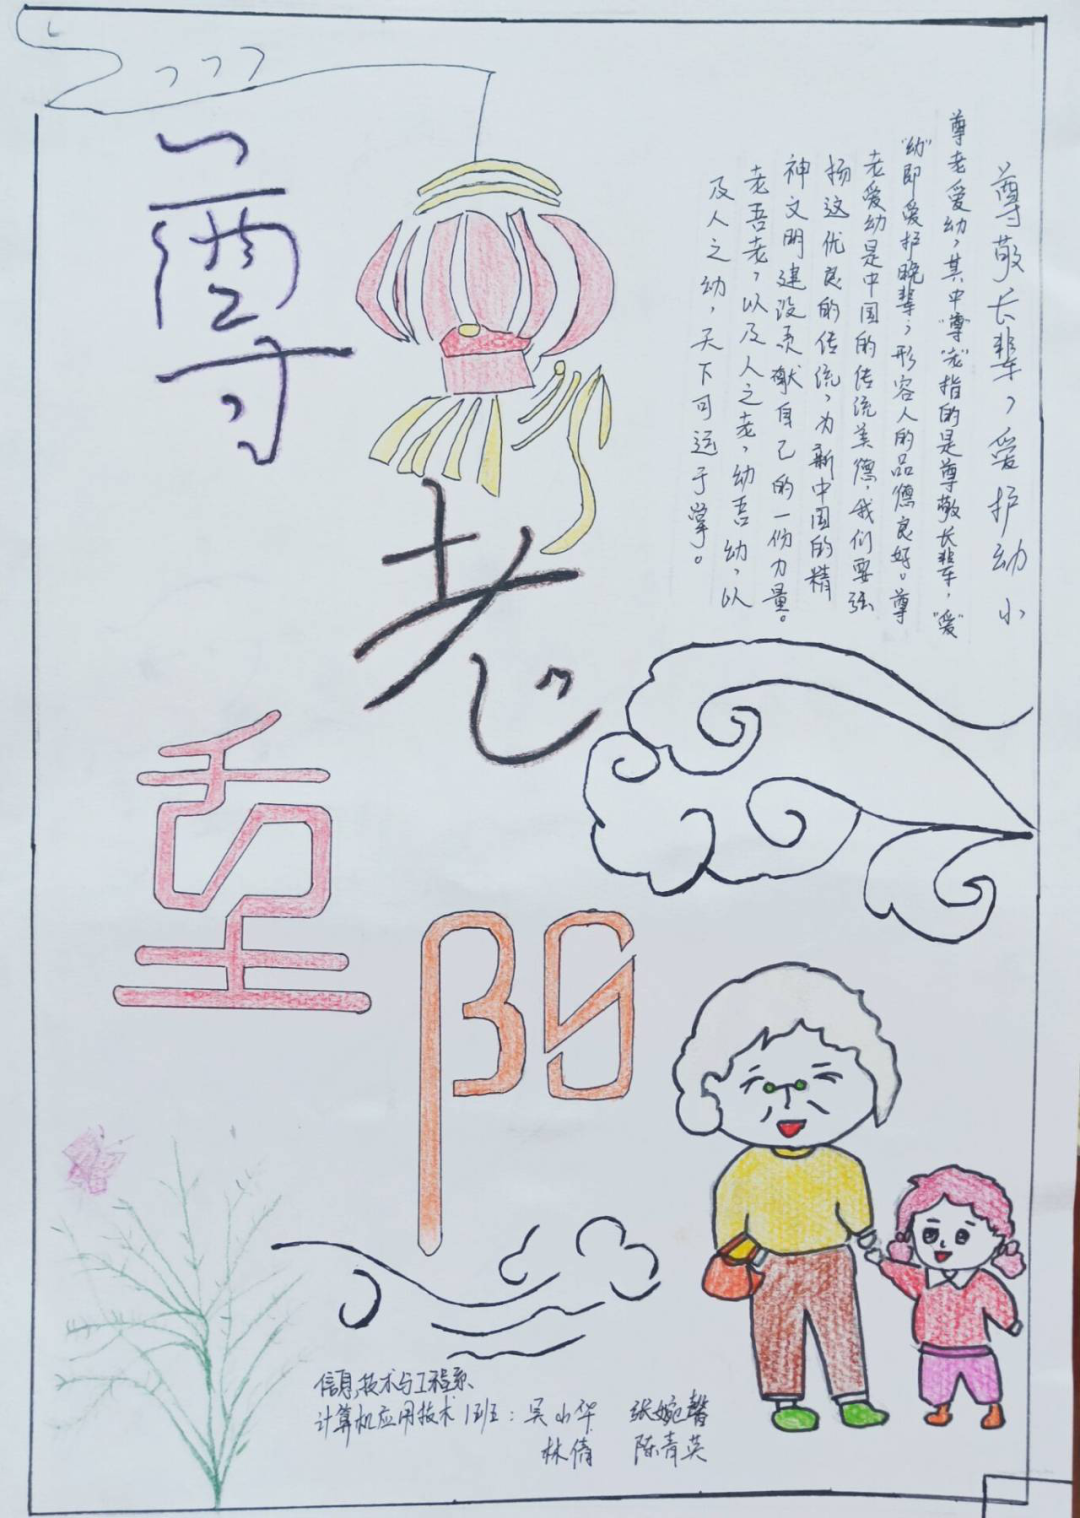 尊老
重阳
尊敬长辈，爱护幼小
尊老爱幼，其中“尊老”指的是尊敬长辈，“爱
幼”即爱护晚辈；形容人的品德良好。尊
老爱幼是中国的传统美德，我们要弘
扬这优良的传统，为新中国的精
神文明建设贡献自己的一份力量。
老吾老，以及人之老，幼吾幼，以
及人之幼，天下可运于掌。
信息技术与工程系
计算机应用技术1班：吴小华 张婉馨
林倩 陈青英